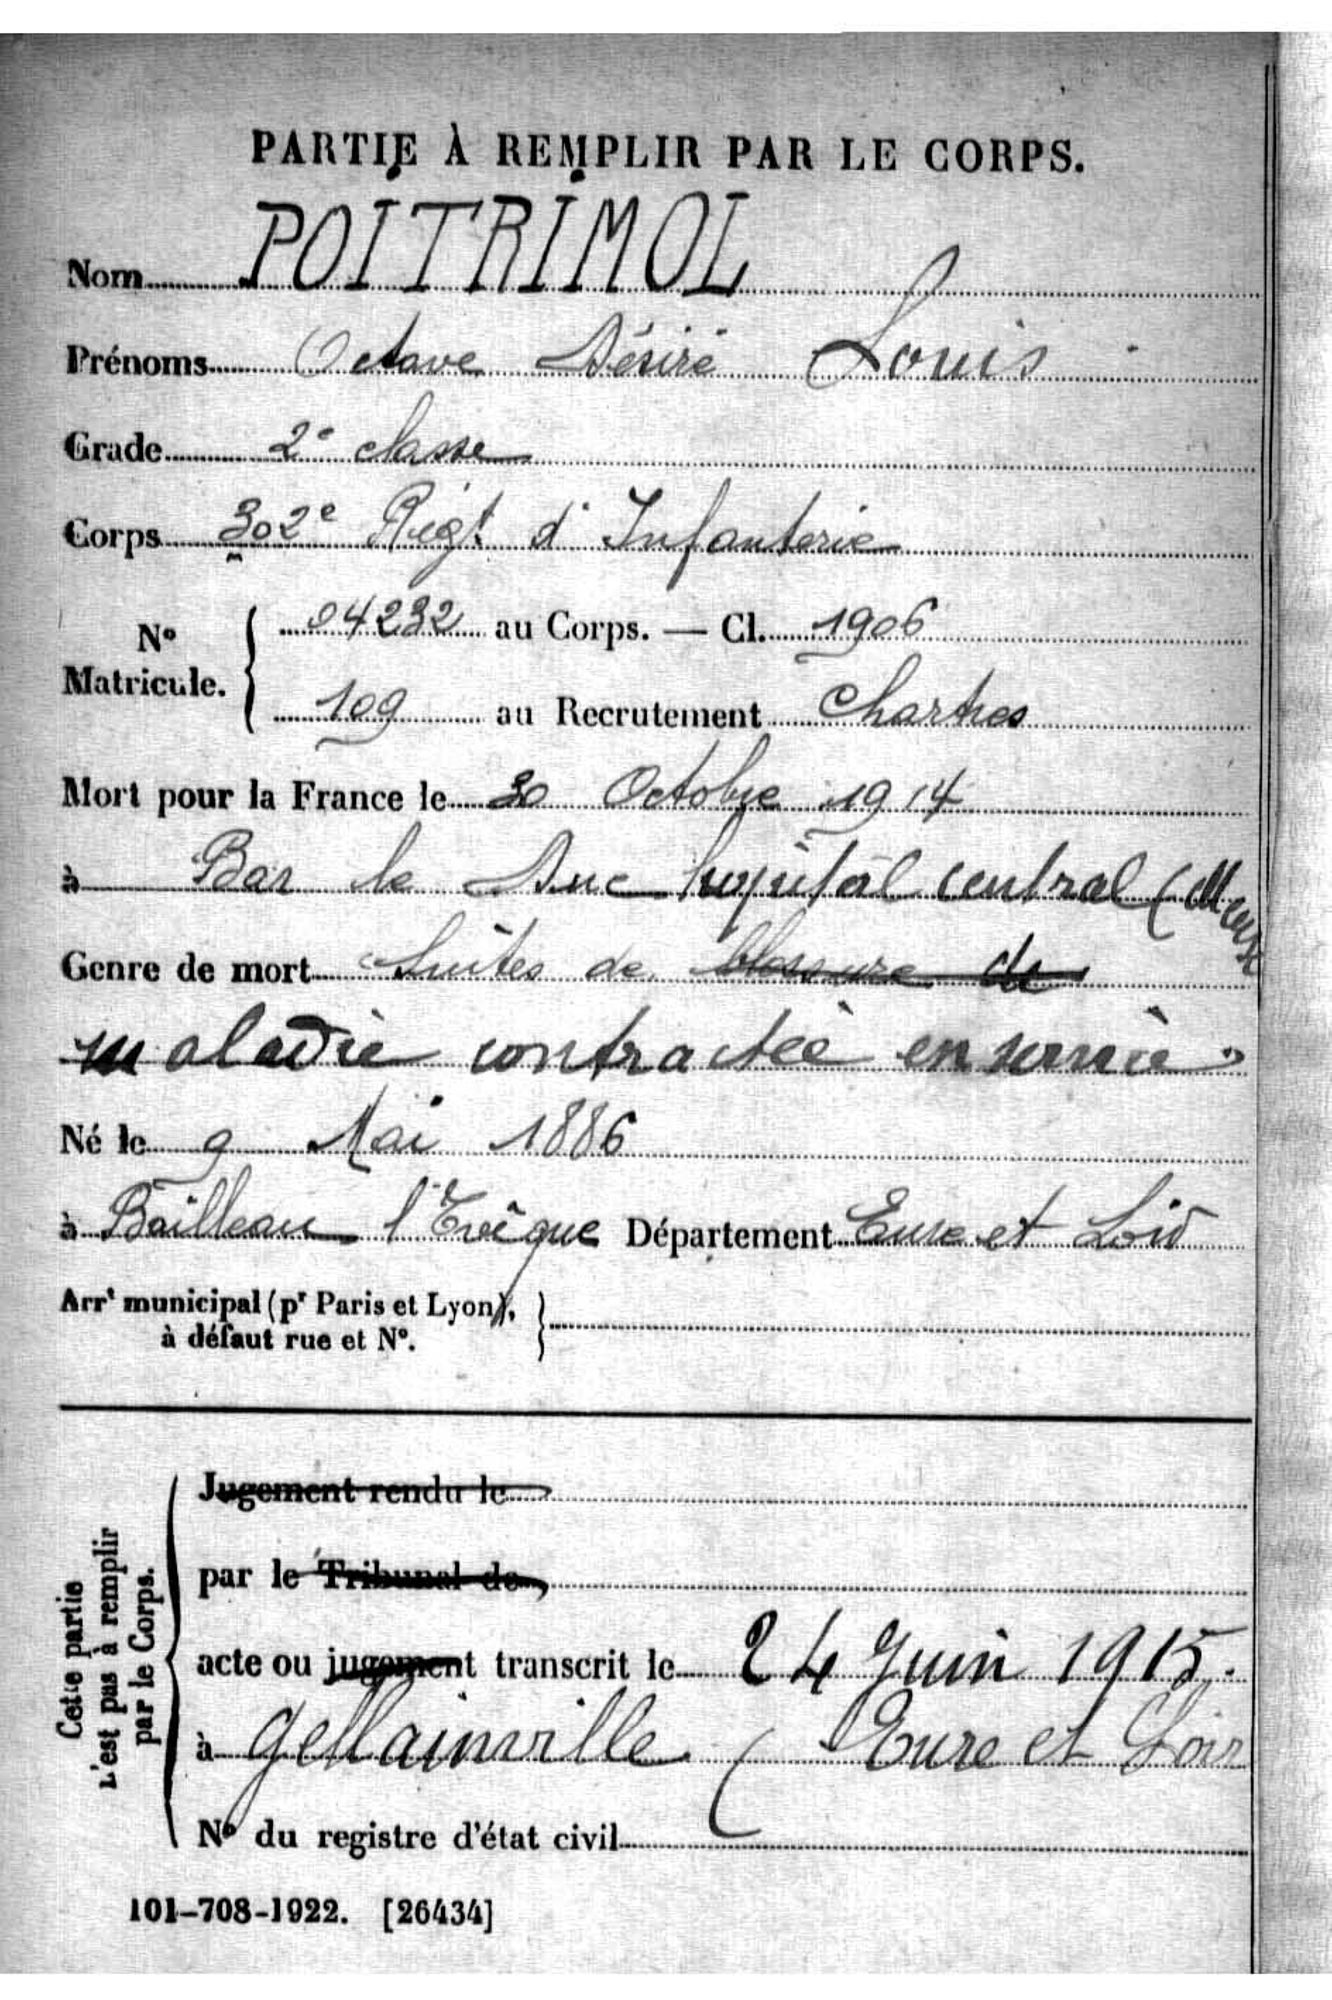 PARTIE À REMPLIR PAR LE CORPS.
Nom POITRIMOL
Prénoms Octave Désiré Louis
Grade 2e classe
Corps 302e Régt d'Infanterie
No Matricule. { 04232 au Corps. — Cl. 1906
109 au Recrutement Chartres
Mort pour la France le 30 Octobre 1914
à Bar le Duc hôpital central (Meuse
Genre de mort Suites de blessure de
maladie contractée en service
Né le 9 Mai 1886
à Bailleau l'Evêque Département Eure et Loir
Arrt municipal (pr Paris et Lyon),
à défaut rue et No.
Cette partie
n'est pas à remplir
par le Corps.
Jugement rendu le
par le Tribunal de
acte ou jugement transcrit le 24 Juin 1915.
à Gellainville (Eure et Loir
No du registre d'état civil
101-708-1922. [26434]